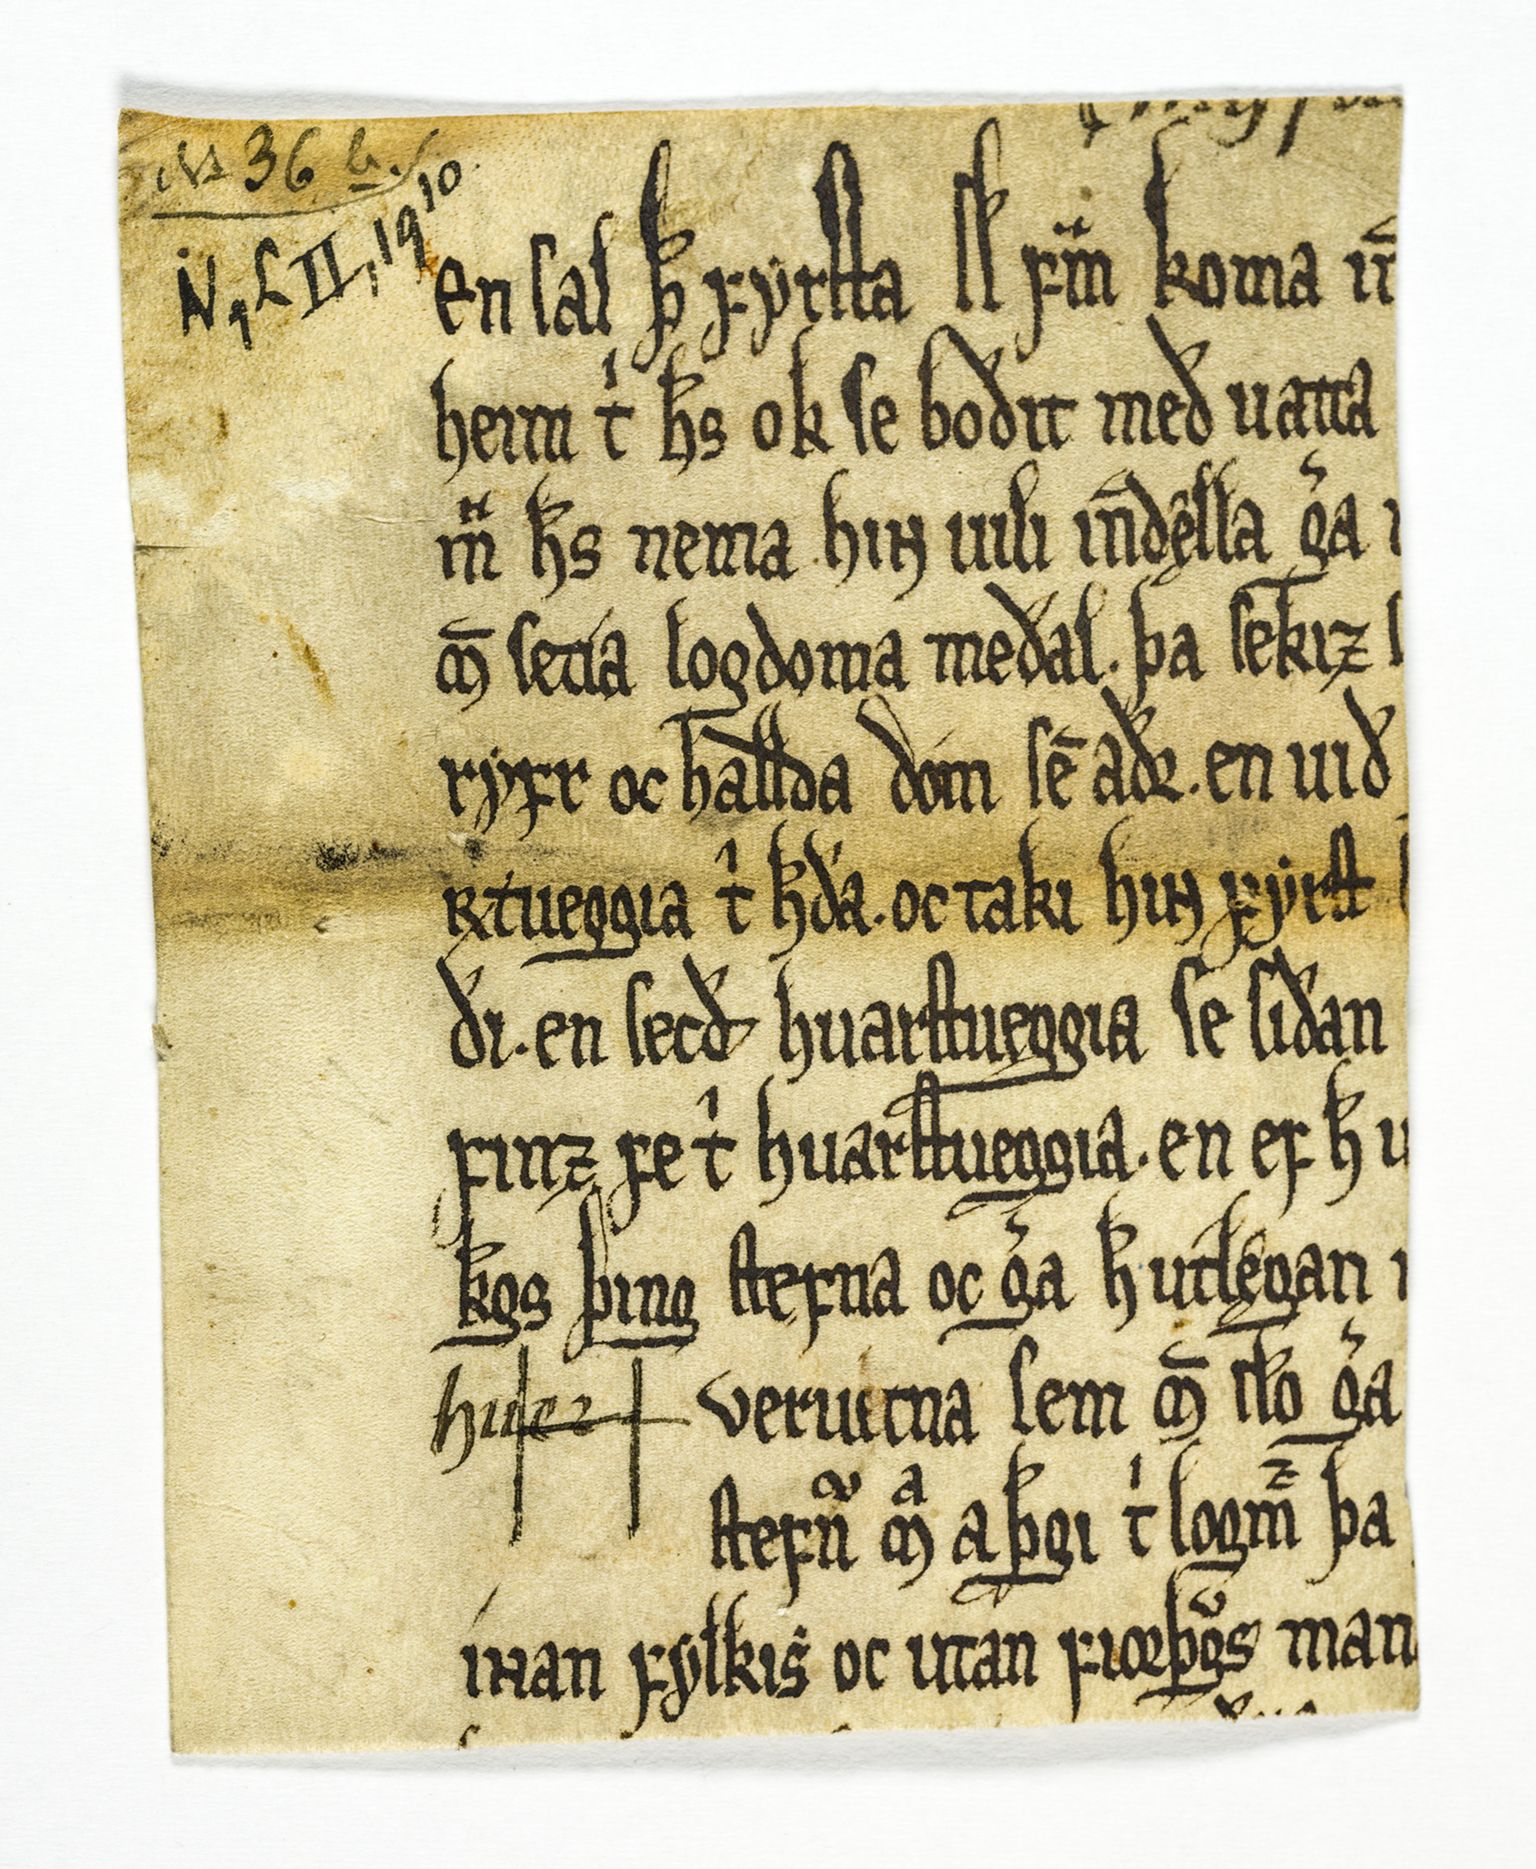 № 36 b.
NgL II, 19¹⁰
en sal þ̄ fyrsta sl fm̄ koma
heim t̍ ħs ok se bodit med uatta
ħs nema hin uili ga
m̄ setia logdoma medal. þa sekiz
ryfr oc hallda dóm sē adr. en uid
rtueggia t̍ ħda. oc taki hin fyrst
di. en secd huarstueggia se sidan
finz fe t̍ huarstueggia. en ef ħ
kgs þing stefna oc ga ħ utlęgan
huser verutna sem m̄ sko ga
stefn a þgi t̍ logm̄ þa
inan fylkis oc utan fiorþgs man